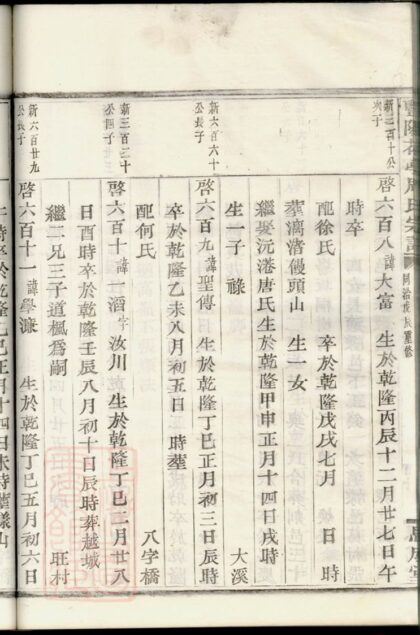 新三百十公
次子
啓六百八諱大富 生於乾隆丙辰十二月廿七日午
時卒
配徐氏 卒於乾隆戊戌七月 日 時
葬 渚饅頭山 生一女
繼娶沅港唐氏生於乾隆甲申正月十四日戌時
生一子 祿 大溪
新六百六十
公長子
啓六百九諱聖傳 生於乾隆丁巳正月初三日辰時
卒於乾隆乙未八月初五日 時葬
配何氏 八字橋
新三百三十
公四子
啓六百十諱一滔字汝川生於乾隆丁巳二月廿八
日酉時卒於乾隆壬辰八月初十日辰時葬越城
繼二兄三子道楓爲嗣 旺村
新六百廿九
公長子
啓六百十一諱學濂 生於乾隆丁巳五月初六日
時卒於乾隆 巳正月十四日未時葬 山